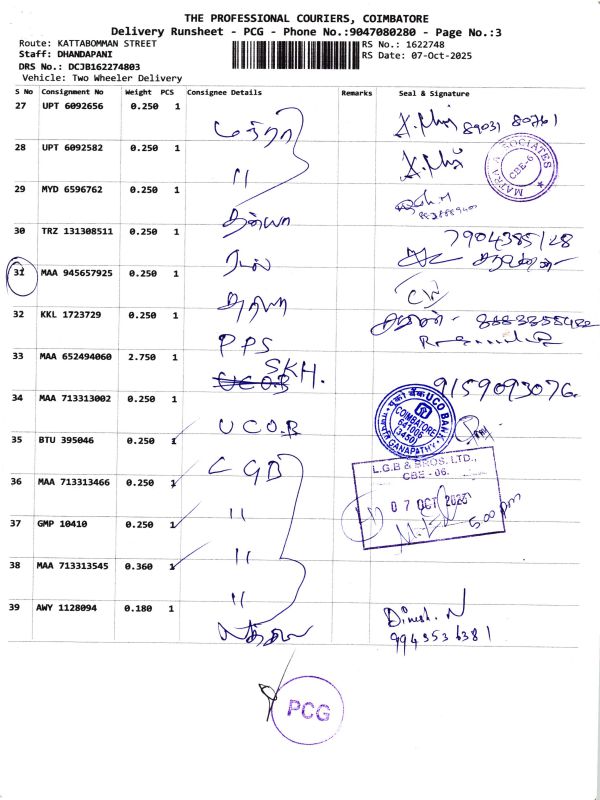 THE PROFESSIONAL COURIERS, COIMBATORE
Delivery Runsheet - PCG - Phone No.:9047080280 - Page No.:3
Route: KATTABOMMAN STREET RS No.: 1622748
Staff: DHANDAPANI RS Date: 07-Oct-2025
DRS No.: DCJB162274803
Vehicle: Two Wheeler Delivery
S No Consignment No Weight PCS Consignee Details Remarks Seal & Signature
27 UPT 6092656 0.250 1 89031 80761
28 UPT 6092582 0.250 1 "
MATRA & SOCIATES
CBE-6
29 MYD 6596762 0.250 1
30 TRZ 131308511 0.250 1 7904385128
31 MAA 945657925 0.250 1
32 KKL 1723729 0.250 1
33 MAA 652494060 2.750 1 PPS
SKH.
34 MAA 713313002 0.250 1 9159093076
UCO BANK
COIMBATORE
641006
(3450)
GANAPATHY
35 BTU 395046 0.250 1 UCO.B
36 MAA 713313466 0.250 1 LGB
L.G.B & BROS. LTD.,
CBE - 06.
07 OCT 2025
5:00 pm
37 GMP 10410 0.250 1 "
38 MAA 713313545 0.360 1 "
"
39 AWY 1128094 0.180 1 Dinesh. N
9943536381
PCG